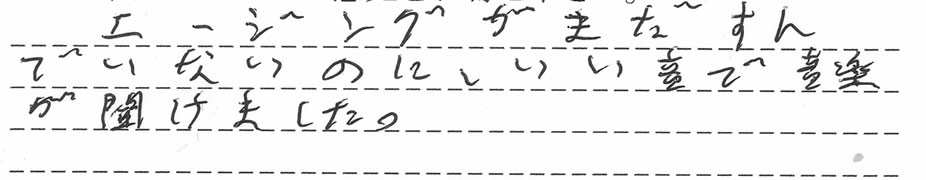 エージングがまだすん
でいないのに、いい音で音楽
が聞けました。